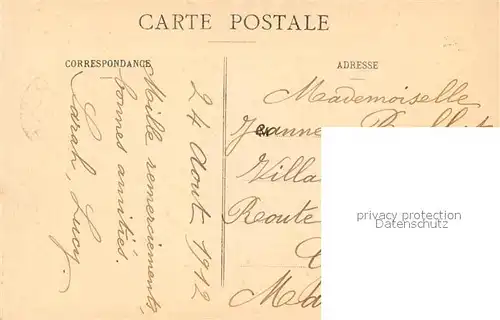 CARTE POSTALE
CORRESPONDANCE
ADRESSE
24 Aout 1912
Mille remerciements,
bonnes amitiés.
Sarah, Lucy.
Mademoiselle
Jeanne
Villa
Route
privacy protection
Datenschutz